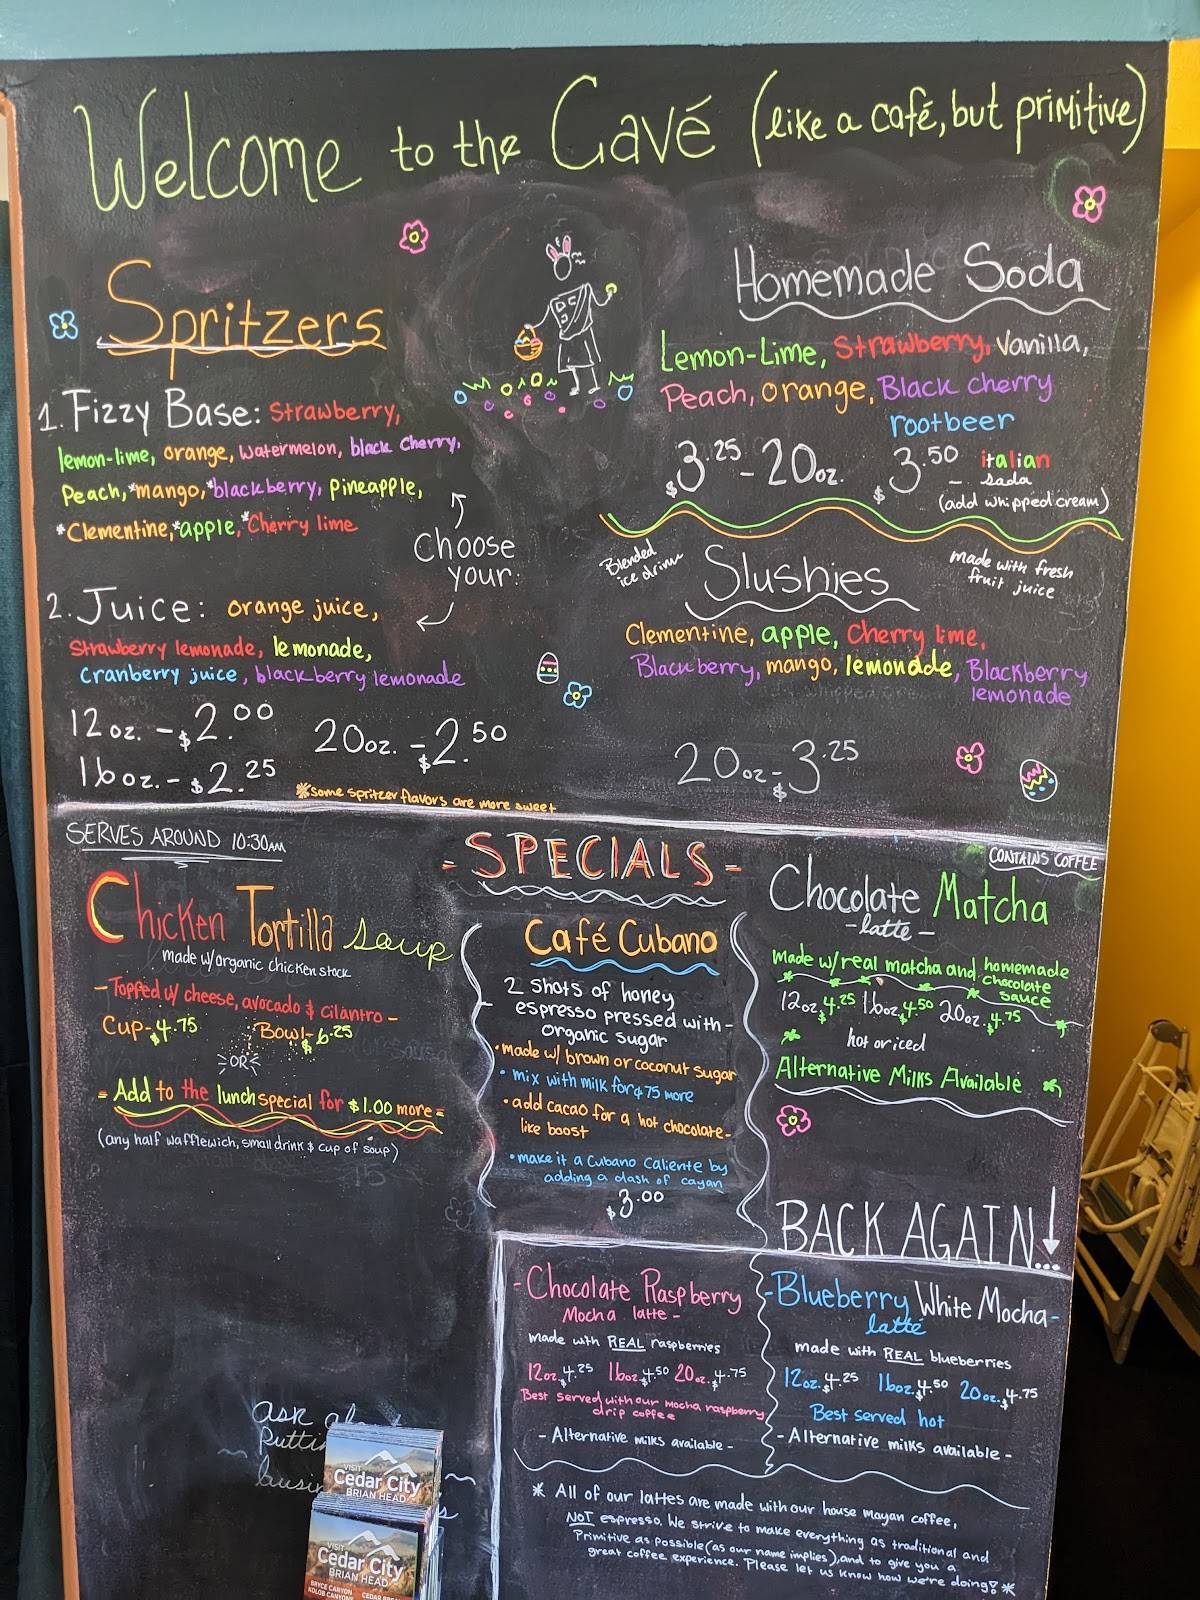 Welcome to the Cavé (like a café, but primitive)
Spritzers
1. Fizzy Base: Strawberry,
lemon-lime, orange, watermelon, black cherry,
Peach, *mango, *blackberry, pineapple,
*Clementine, *apple, *Cherry lime
Choose
your:
2. Juice: orange juice,
Strawberry lemonade, lemonade,
Cranberry juice, blackberry lemonade
12oz. - $2.00
16oz. - $2.25
20oz. - $2.50
*some spritzer flavors are more sweet
Homemade Soda
Lemon-Lime, Strawberry, Vanilla,
Peach, orange, Black cherry
rootbeer
$3.25 - 20oz.
$3.50 - italian
soda
(add whipped cream)
Blended
ice drink
Slushies
made with fresh
fruit juice
Clementine, apple, Cherry lime,
Blackberry, mango, lemonade, Blackberry
lemonade
20oz - $3.25
SERVES AROUND 10:30AM
Chicken Tortilla Soup
made w/organic chicken stock
- Topped w/ cheese, avocado & cilantro -
Cup - $4.75 Bowl - $6.25
OR
- Add to the lunch special for $1.00 more -
(any half wafflewich, small drink & cup of soup)
- SPECIALS -
Café Cubano
2 shots of honey
espresso pressed with -
organic sugar
• made w/ brown or coconut sugar
• mix with milk for $.75 more
• add cacao for a hot chocolate -
like boost
• make it a Cubano Caliente by
adding a dash of cayan
$3.00
CONTAINS COFFEE
Chocolate Matcha
- latte -
made w/real matcha and homemade
chocolate
sauce
12oz $4.25 16oz $4.50 20oz. $4.75
hot or iced
Alternative Milks Available
BACK AGAIN...
- Chocolate Raspberry
Mocha latte -
made with REAL raspberries
12oz. $4.25 16oz $4.50 20oz. $4.75
Best served with our mocha raspberry
drip coffee
- Alternative milks available -
- Blueberry White Mocha -
latté
made with REAL blueberries
12oz. $4.25 16oz. $4.50 20oz. $4.75
Best served hot
- Alternative milks available -
* All of our lattes are made with our house mayan coffee,
NOT espresso. We strive to make everything as traditional and
Primitive as possible (as our name implies), and to give you a
great coffee experience. Please let us know how we're doing! *
ask
VISIT
Cedar City
BRIAN HEAD
VISIT
Cedar City
BRIAN HEAD
BRYCE CANYON